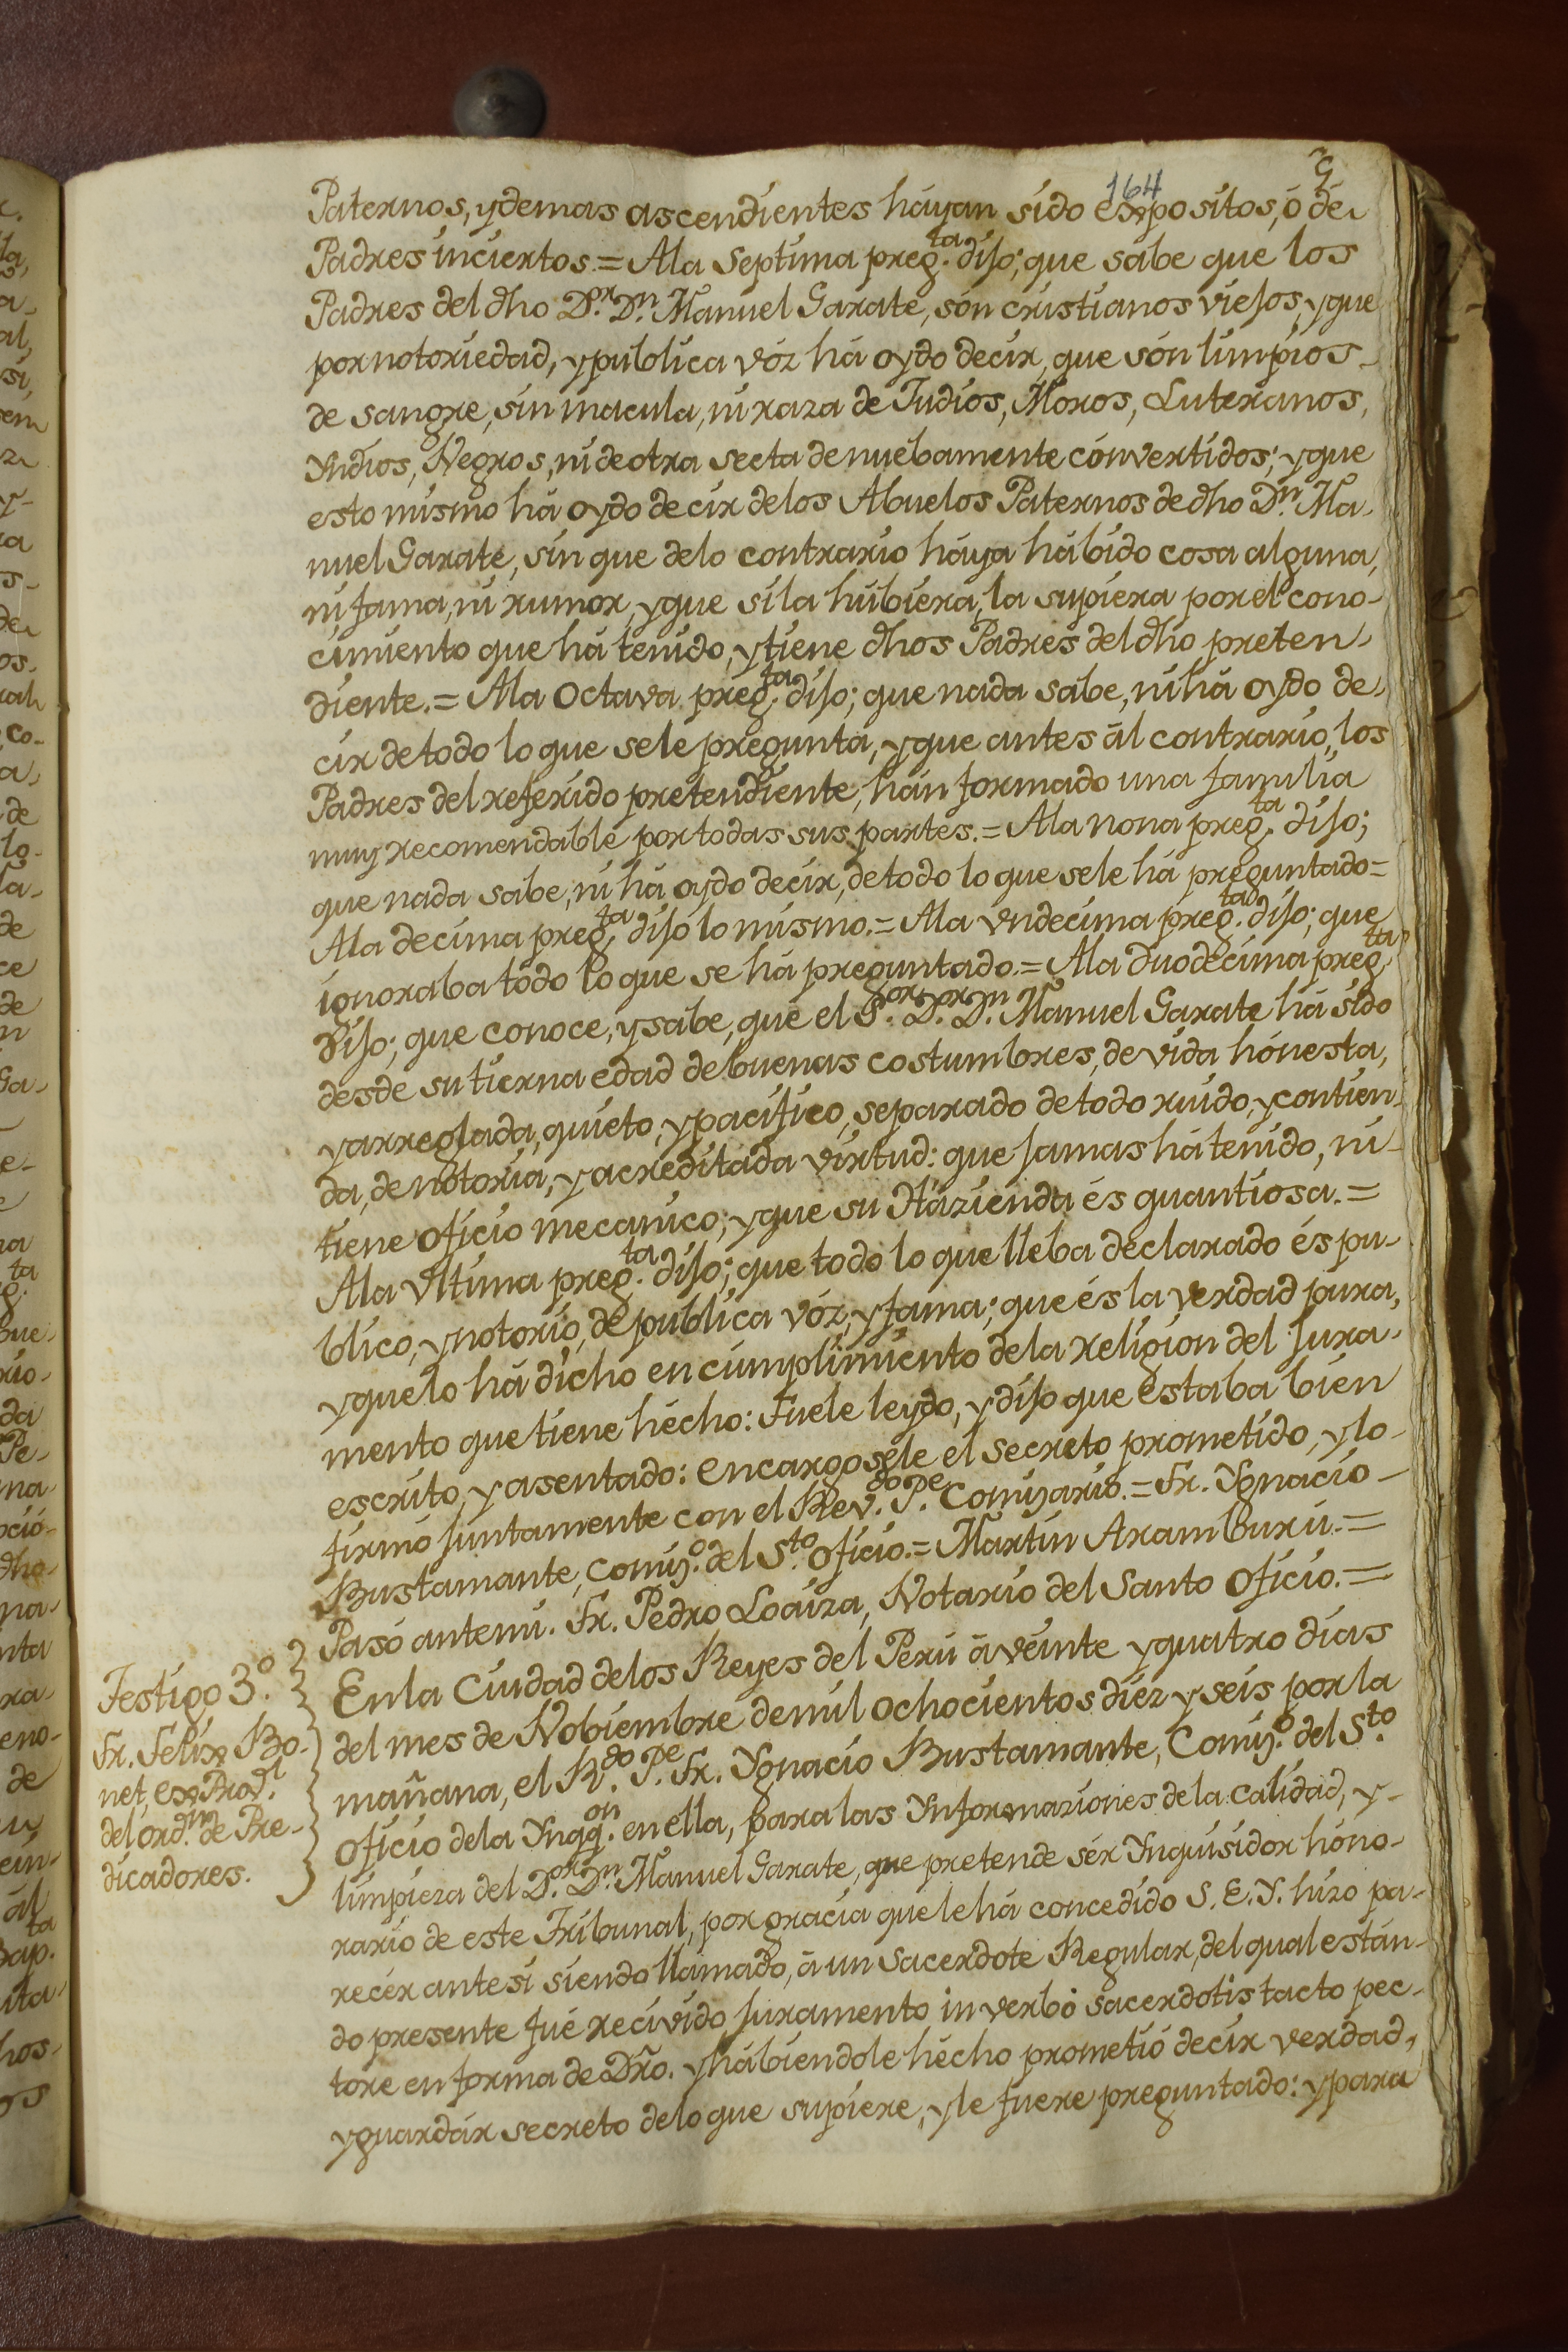 164
9
Paternos, y demas ascendientes háyan sído expositos, ó de
Padres inciertos.= A la Septíma preg.ta díjo; que sabe que los
Padres del dho D.or D.n Manuel Garate, són cristianos viejos, y que
por notoriedad, y publica vóz há oydo decir, que són límpios
de sangre, sin macula, ni raza de Judíos, Moros, Luteranos,
Yndios, Negros, ni de otra secta de nuebamente cónvertídos; y que
esto mismo há oydo decir de los Abuelos Paternos de dho D.n Ma-
nuel Garate, sín que de lo contrario háya hábído cosa alguna,
ni fama, ni rumor, y que si la húbiera, la supiera por el cono-
cimiento que há tenído, y tiene dhos Padres del dho preten-
diente.= A la Octava preg.ta díjo; que nada sabe, ni há oydo de-
cir de todo lo que se le pregunta, y que antes ál contrario, los
Padres del referido pretendiente, hán formado una família
muy recomendable por todas sus partes.= A la nona preg.ta díjo;
que nada sabe, ni há oydo decír, de todo lo que se le há preguntado=
A la decima preg.ta díjo lo mismo.= A la vndecima preg.ta díjo; que
ignoraba todo lo que se há preguntado.= A la duodecima preg.ta
Díjo; que conoce, y sabe, que el S.or D.or D.n Manuel Garate há sído
desde su tierna edad de buenas costumbres, de vida hónesta,
y arreglada, quieto, y pacífico, separado de todo ruido, y contien-
da, de notoria, y acreditada vírtud: que jamas há tenído, ni
tiene ofício mecanico; y que su Házienda és quantíosa.=
A la vltima preg.ta díjo; que todo lo que lleba declarado és pu-
blico, y notorio, de publica vóz, y fama; que és la verdad pura,
y que lo há dícho en cumplimiento de la relígion del jura-
mento que tiene hécho: Fuele leydo, y díjo que estaba bien
escrito, y asentado: encargosele el secreto prometído, y lo
firmó juntamente con el Rev.do P.e Comisario.= Fr. Ygnacio
Bustamante, Comis.o del S.to Ofício.= Martin Aramburú.=
Pasó ante mi. Fr. Pedro Loaiza, Notario del Santo Oficio.=
Testigo 3.o
Fr. Felix Bo-
net, ex Prov.l
del ord.n de Pre-
dicadores.
En la Ciudad de los Reyes del Perú á veinte y quatro días
del mes de Nobiembre de mil ochocientos díez y seis por la
mañana, el R.do P.e Fr. Ygnacio Bustamante, Comis.o del S.to
oficio de la Ynqq.on en ella, para las Ynformaziones de la calidad, y
limpieza del D.or D.n Manuel Garate, que pretende sér Ynquisidor hóno-
rario de este Tribunal, por gracia que le há concedido S. E. Y. hizo pa-
recér ante si siendo llamado, á un Sacerdote Regular, del qual están-
do presente fué recivido juramento in verbo sacerdotis tacto pec-
tore en forma de Dro. y hábiendole hécho prometió decir verdad,
y guardár secreto de lo que supiere, y le fuere preguntado: y para